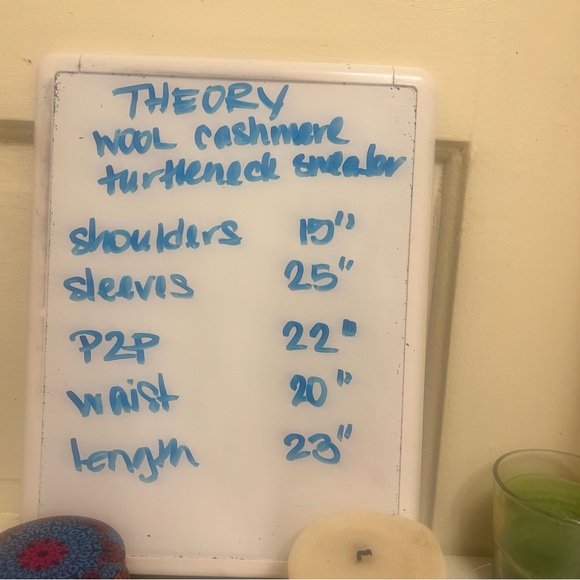 THEORY
WOOL cashmere
turtleneck sweater
shoulders 15"
sleeves 25"
P2P 22"
waist 20"
length 23"